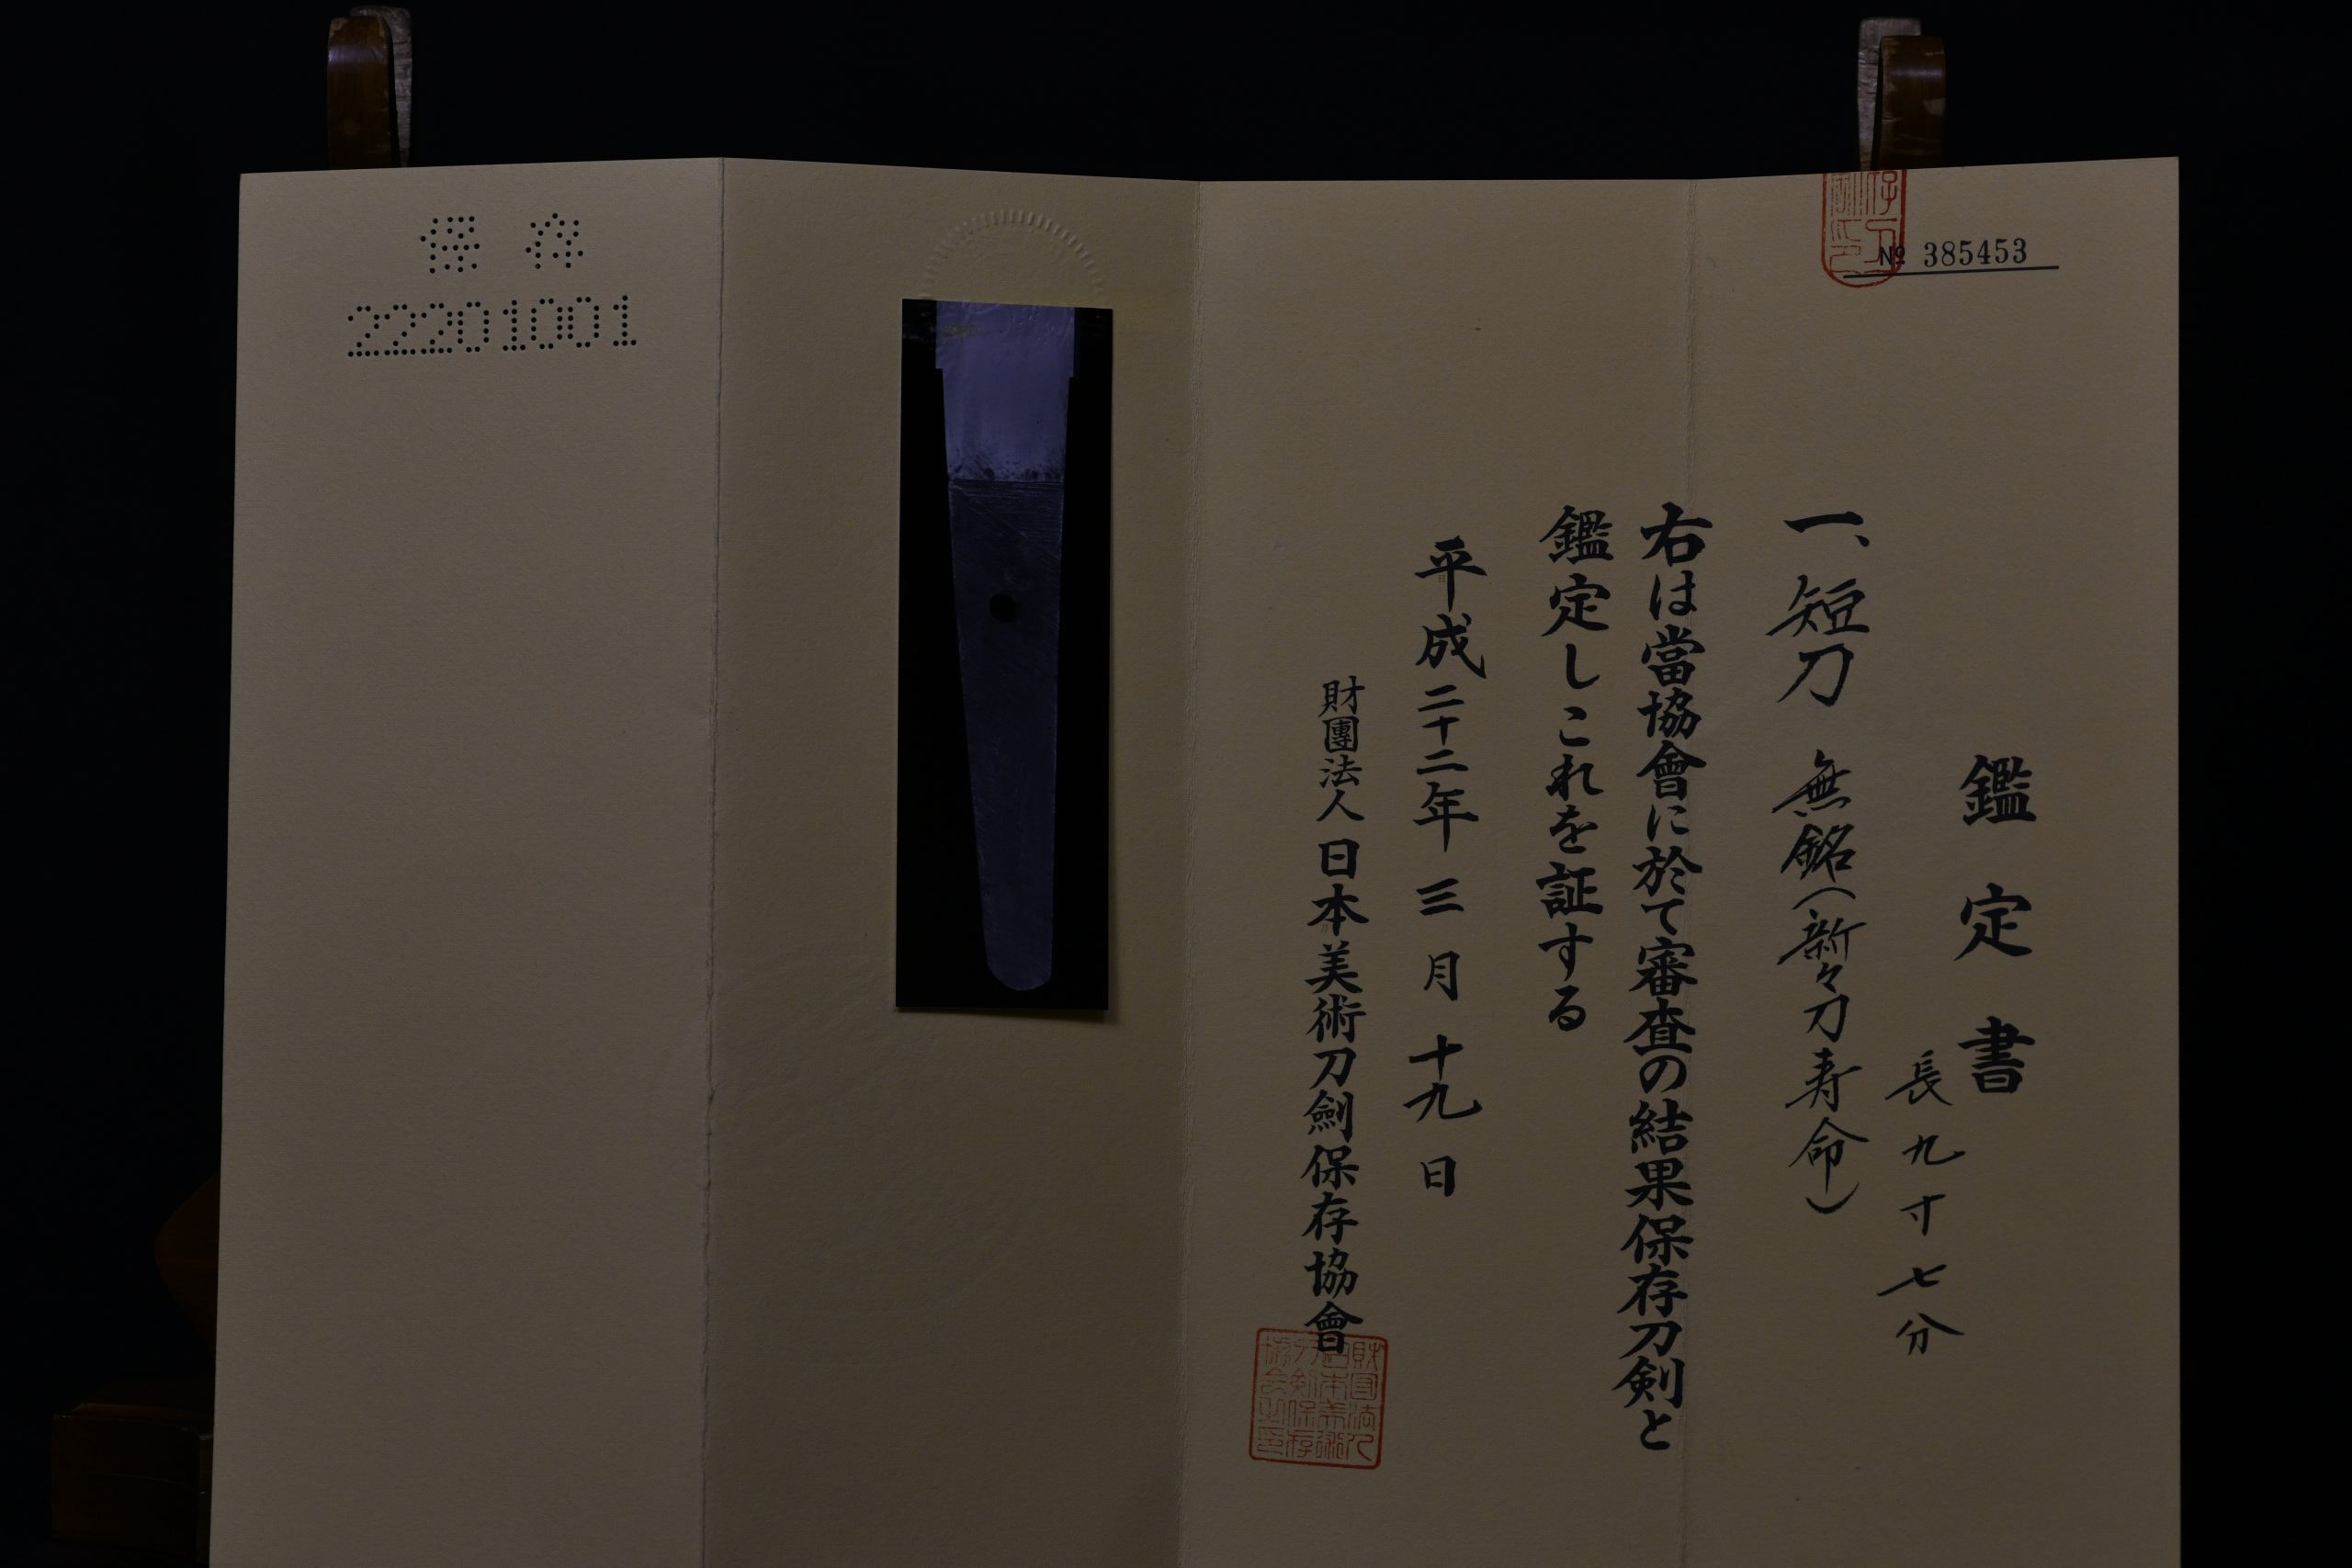 № 385453
鑑定書
長九寸七分
一、短刀 無銘(新々刀寿命)
右は當協會に於て審査の結果保存刀剣と
鑑定しこれを証する
平成二十二年三月十九日
財團法人日本美術刀劍保存協會
財団法人
日本美術
刀剣保存
協会之印
保存
22201001